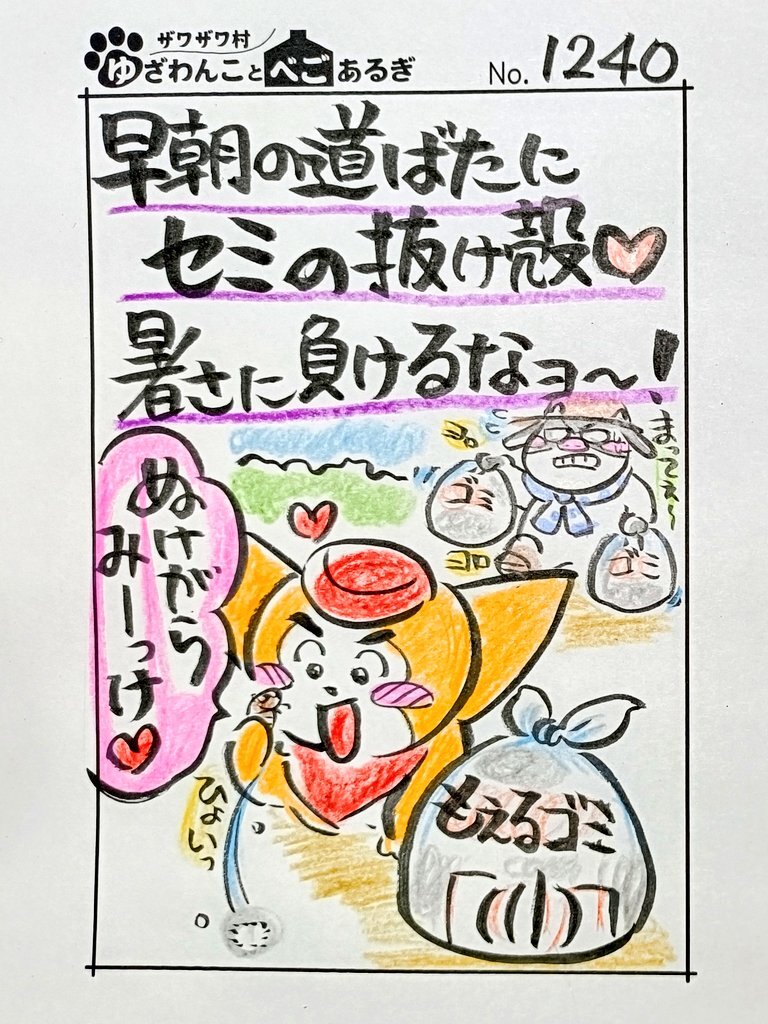 ザワザワ村
ゆざわんことべごあるぎ
No. 1240
早朝の道ばたに
セミの抜け殻♥
暑さに負けるなョ〜!
まってぇ〜
ヨロ
ゴミ
ゴミ
ヨロ
ぬけがら
みーっけ♥
ひょいっ
もえるゴミ